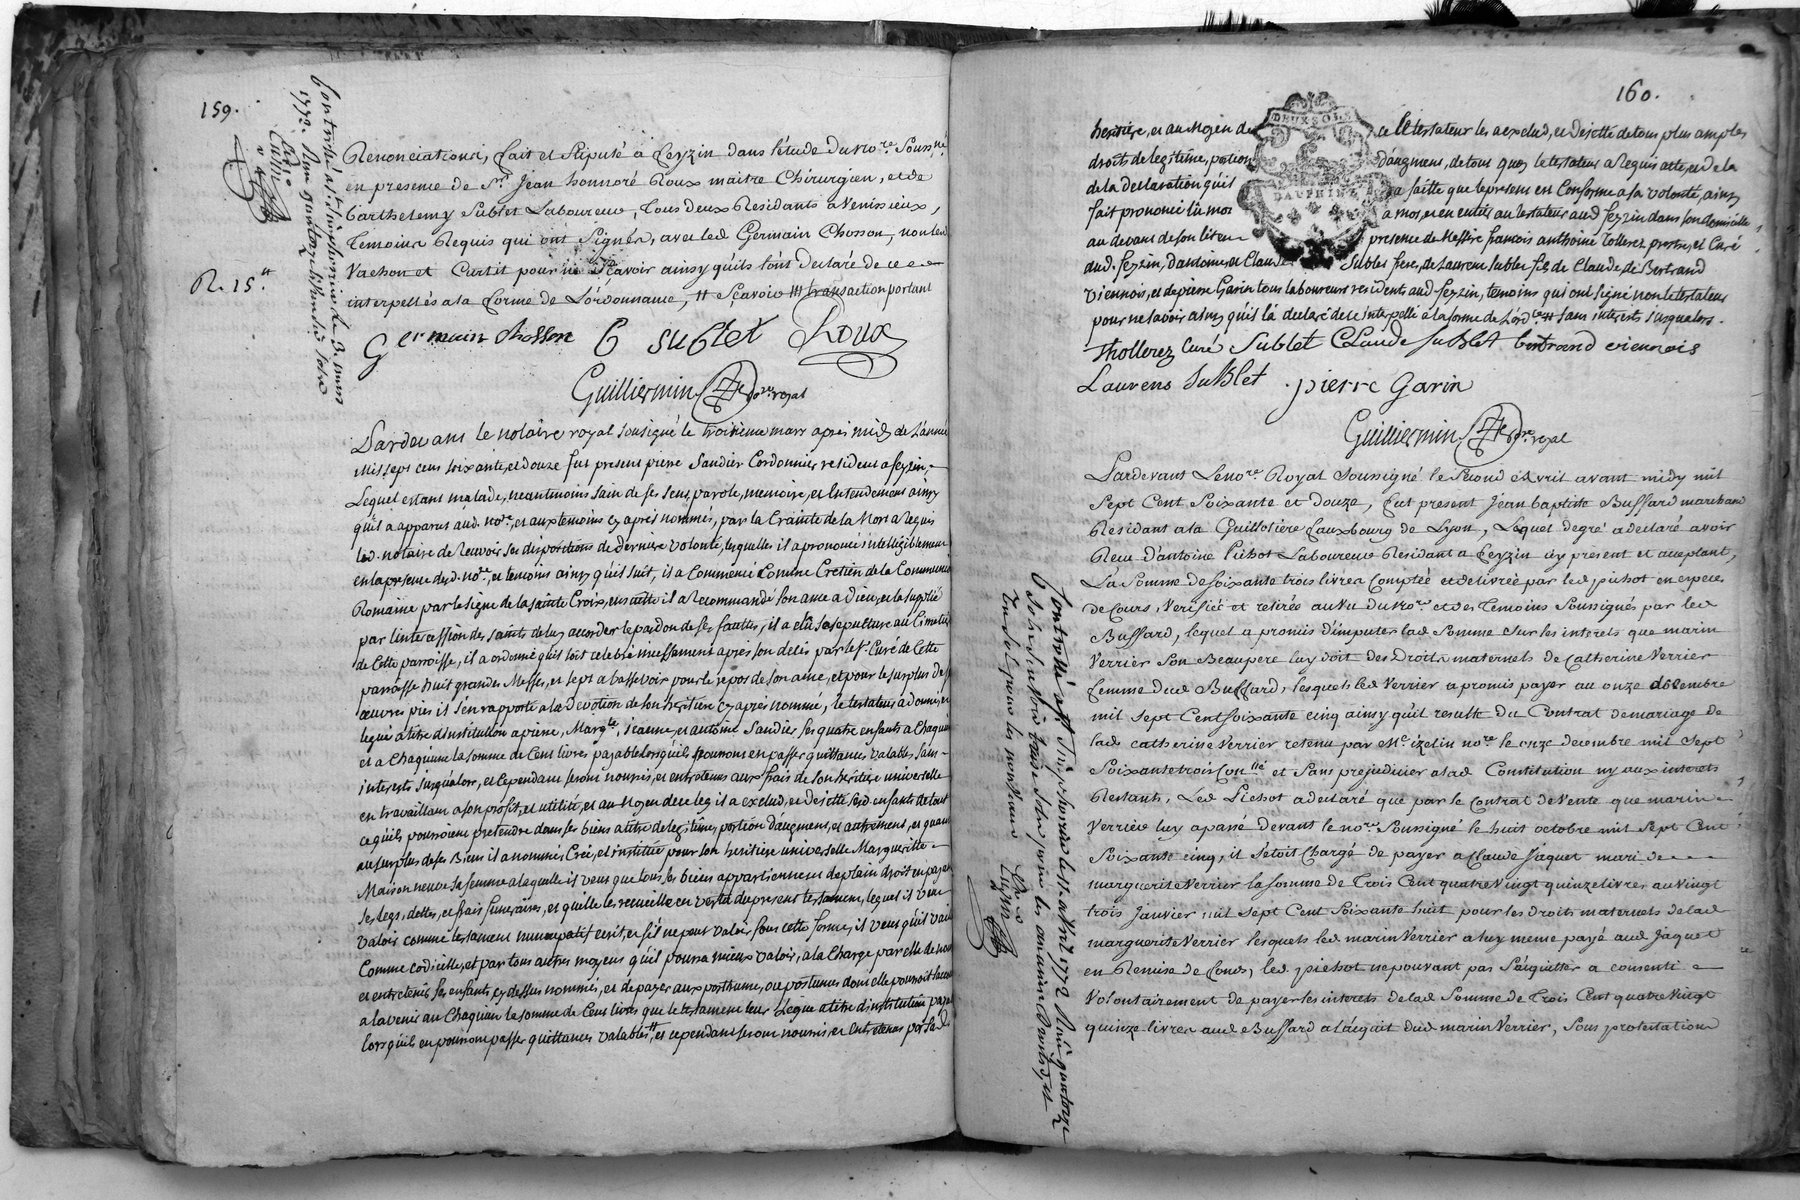 159.
R. 15.tt
Renonciations, fait et stipulé à feyzin dans l'étude du no.re sous.né
en presence de S.r Jean honnoré Roux maitre Chirurgien, et de
barthelemy Sublet Laboureur, tous deux Residants a Venissieux,
temoins Requis qui ont signés, avec led Germain Chosson, non led
Vachon et Curtit pour ne sçavoir ainsy qu'ils l'ont declaré de ce
interpellés a la forme de l'ordonnance, # sçavoir ## transaction portant
Germain Chosson B Sublet Roux
Guilliermin no.re royal
Pardevant le notaire royal soussigné le troisieme mars après midy de l'année
mil sept cens soixante, et douze fut present pierre Saudier Cordonnier resident a feyzin,
Lequel estant malade, neantmoins sain de ses sens, parole, memoire, et Entendement ainsy
qu'il a apparus aud. no.re, et aux temoins cy après nommés, par la Crainte de la Mort a Requis
led. notaire de Recevoir ses dispositions de derniere volonté, lesquelles il a prononcé intelligiblement
en la presence dud. no.re, et temoins ainsy qu'il suit, il a Commencé Comme Cretien de la Communion
Romaine par le signe de la sainte Croix, ensuitte il a Recommandé son ame a Dieu, et le supplié
par l'intercession des saints de luy accorder le pardon de ses fauttes, il a élû sa sepulture au Cimetiere
de Cette parroisse, il a ordonné qu'il soit celebré incessament après son deces par le S.r Curé de Cette
parroisse huit grandes Messes, et sept a basse voix pour le repos de son ame, et pour le surplus des
œuvres pies il s'en rapporte a la devotion de son heritiere cy après nommée, le testateur a donné, et
legué a titre d'institution a pierre, Marg.te, jeanne, et antoine Saudier ses quatre enfants a Chaquun
et a Chaquune la somme de Cent livres payable lorsqu'ils pourront en passer quittances valables, sans
interests jusqu'alors, et Cependant seront nourris, et entretenus aux frais de son heritiere universelle
en travaillant a son profit, et utilité, et au Moyen de ce leg il a exclud, et dejetté sesd enfants de tout
ce qu'ils pourroient pretendre dans ses biens a titre de legitime, portion d'augment, et autrement, et quant
au surplus de ses Biens il a nommée Créé, et instituée pour son heritiere universelle Margueritte
Maison neuve sa femme a laquelle il veut que tous ses biens appartiennent de plain droit en payant
ses legs, dettes, et frais funeraires, et qu'elle les recueille en vertu du present testament, lequel il veut
valoir comme testament nuncupatif ecrit, et s'il ne peut valoir sous cette forme, il veut qu'il vaille
Comme codicille, et par tous autres moyens qu'il pourra mieux valoir, a la Charge par elle de nourrir
et entretenir ses enfants cy dessus nommés, et de payer aux posthumes, ou postumes dont elle pourroit
a l'avenir au Chaquun la somme de Cent livres que le testament leur Legue a titre d'institution payable
lorsqu'ils en pourront passer quittances valables, et cependant seront nourris, et Entretenus par sad
160.
DEUX SOLS
DAUPHINÉ
heritiere, et au Moyen de ce le testateur les a exclud, et dejetté de tous plus amples
droits de legitime, portion d'augment, de tout quoy le testateur a Requis acte, et de la
de la Declaration qu'il a faitte que le present est Conforme a sa volonté, ainsy
fait prononcé lû mot a mot, et en entier au testateur aud feyzin dans son domicille
au devant de son lit en presence de Messire francois anthoine tollerez prestre, et Curé
aud. feyzin, d'antoine et Claude Sublet frere, de Laurent Sublet fils de Claude de Bertrand
viennois, et de pierre Garin tous laboureurs residents aud feyzin, temoins qui ont signé non le testateur
pour ne savoir ainsy qu'il l'a declaré de ce interpellé a la forme de l'ord.ce # sans interests jusqualors.
Thollerez Curé Sublet Claude Sublet bertrand viennois
Laurens Sublet pierre Garin
Guilliermin no.re royal
Pardevant Le no.re Royal Soussigné le Second avril avant midy mil
Sept Cent Soixante et Douze, fut present Jean baptiste Buffard marchand
Residant a la Guillotiere fauxbourg de Lyon, Lequel degré a declaré avoir
Receu D'antoine Pichot Laboureur Residant a feyzin icy present et acceptant,
La Somme de soixante trois livres Comptée et delivrée par led pichot en especes
de Cours, verifiée et retirée au vu du no.re et des temoins Soussignés par led
Buffard, lequel a promis d'imputer lad somme sur les interets que marin
Verrier son Beaupere luy doit des Droits maternels de Catherine Verrier
femme dud Buffard, lesquels led Verrier a promis payer au onze decembre
mil sept Cent soixante cinq ainsy qu'il resulte du Contrat de mariage de
lad catherine Verrier retenu par M.e izelin no.re le onze decembre mil sept
soixante trois Con.llé et sans prejudicier a lad Constitution ny aux interets
Restants, Led Pichot a declaré que par le Contrat de Vente que marin
Verrier luy a passé devant le no.re Soussigné le huit octobre mil Sept Cent
Soixante cinq, il s'etoit Chargé de payer a Claude Jaquet mari de
marguerite Verrier la somme de Trois Cent quatre Vingt quinze livres au Vingt
trois Janvier mil Sept Cent Soixante huit pour les droits maternels de lad
marguerite Verrier lesquels led marin Verrier a luy meme payé aud Jaquet
en Remise de fonds, led pichot ne pouvant pas s'aquitter a consenti
Volontairement de payer les interets de lad Somme de Trois Cent quatre Vingt
quinze livres aud Buffard a l'acquit dud marin Verrier, sous protestation